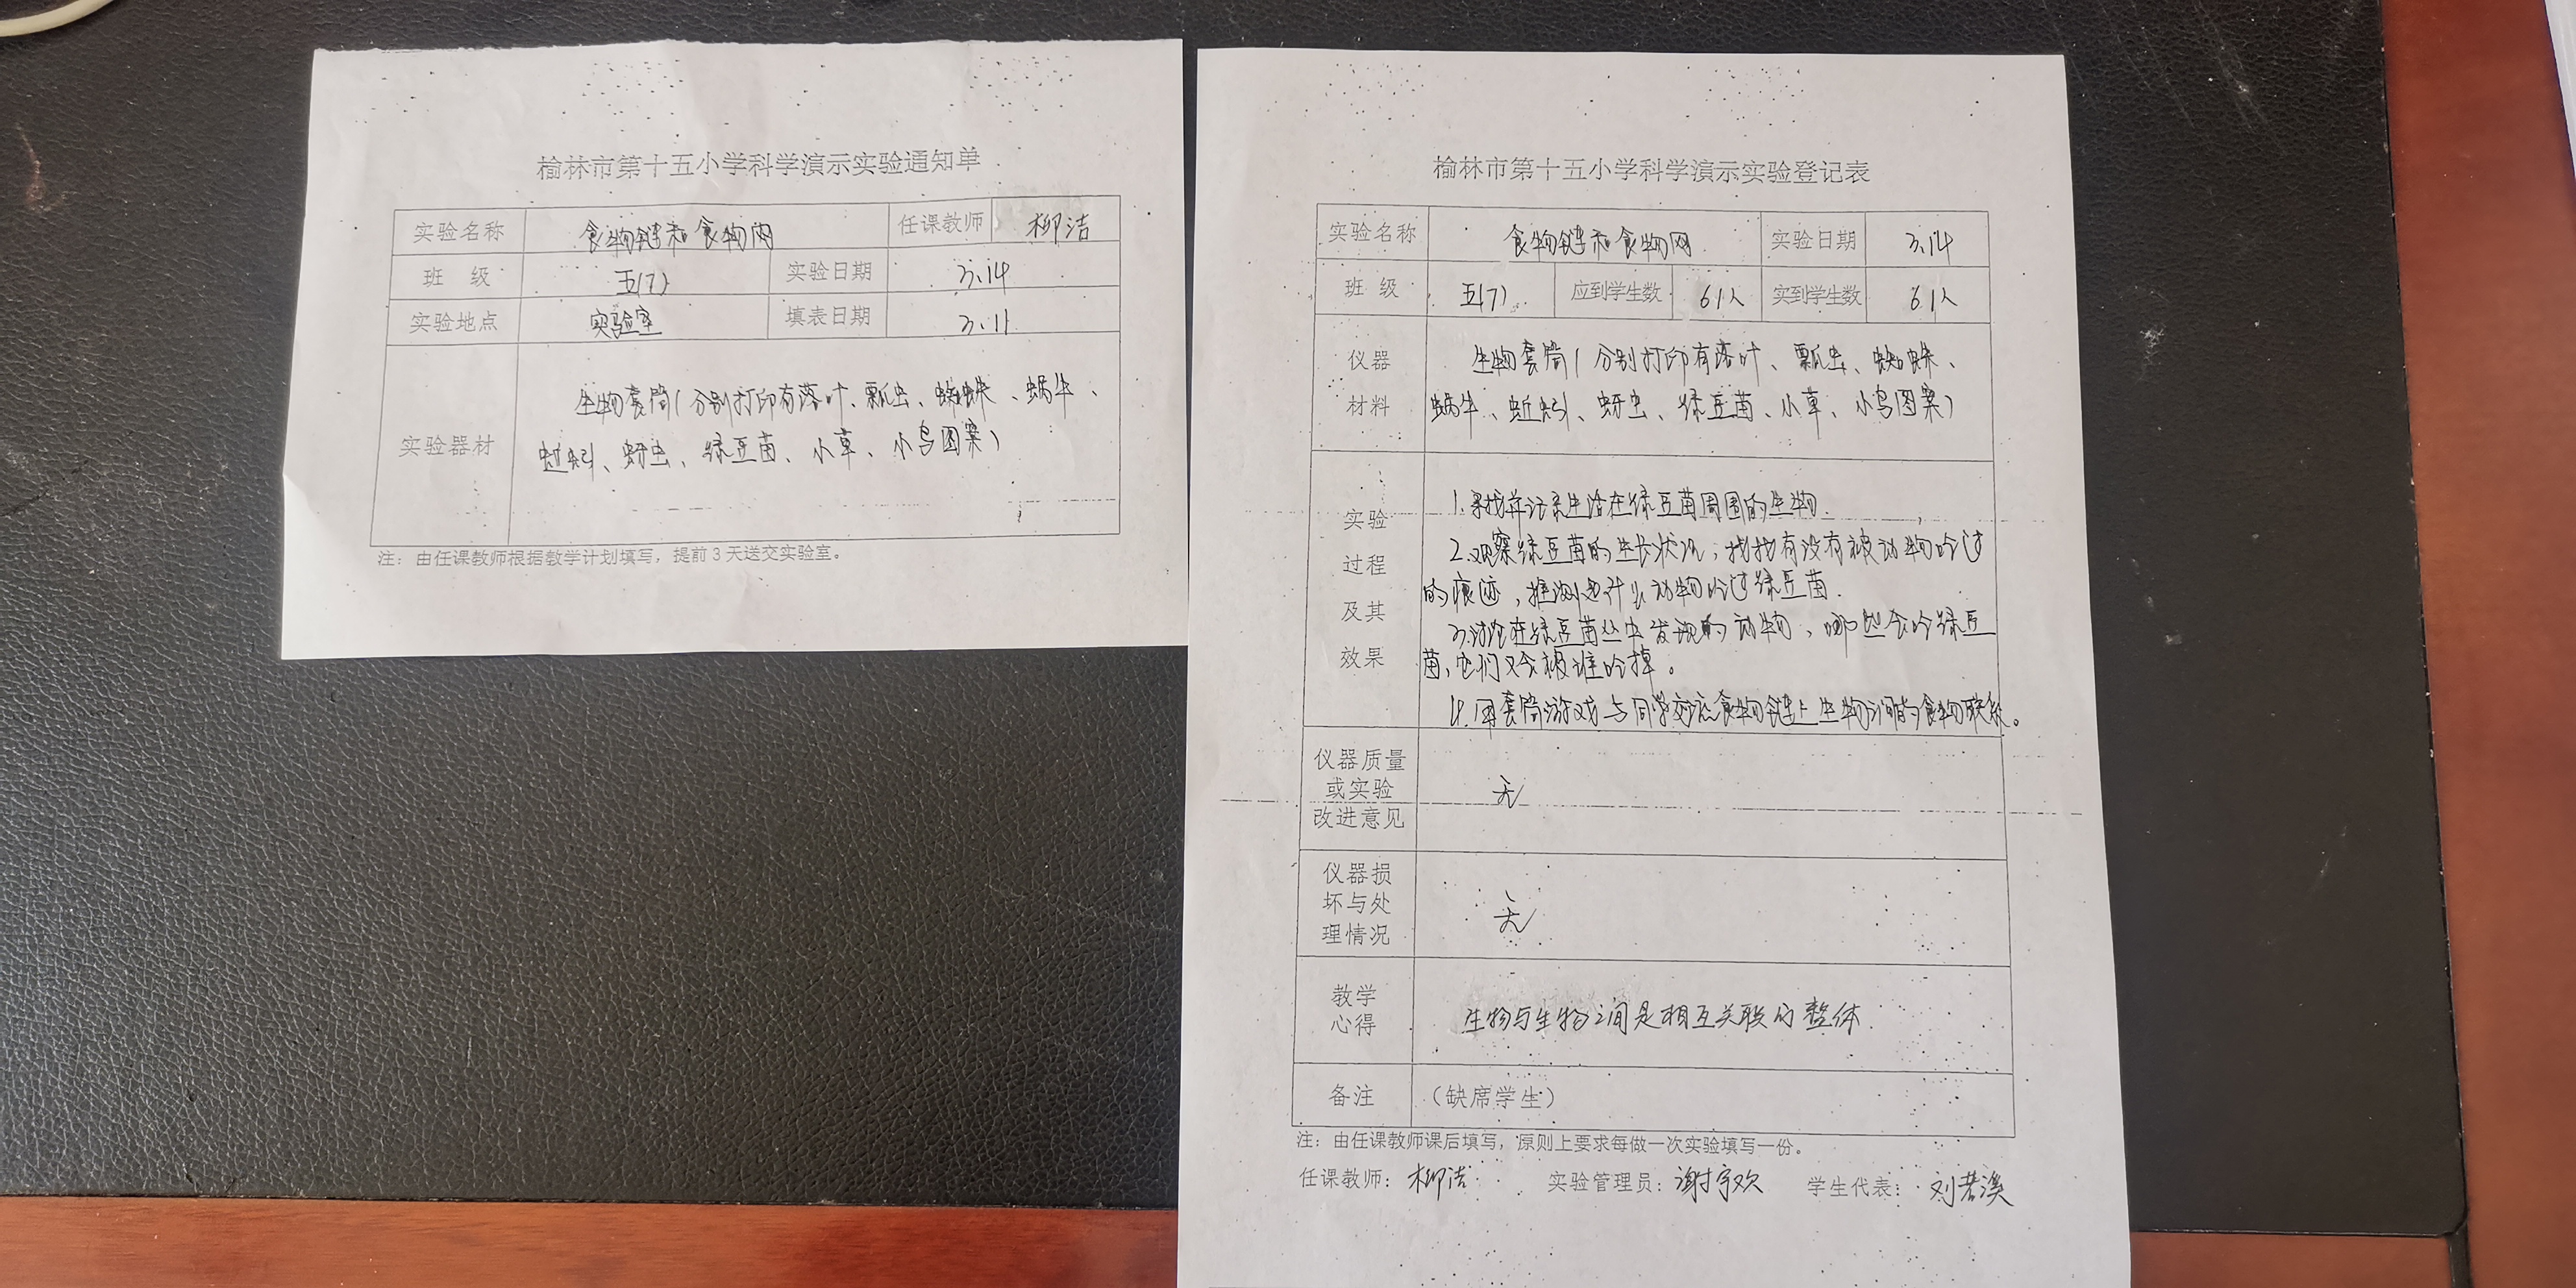 榆林市第十五小学科学演示实验通知单
实验名称 食物链和食物网 任课教师 柳洁
班 级 五(7) 实验日期 3.14
实验地点 实验室 填表日期 3.11
实验器材
生物套筒(分别打印有落叶、瓢虫、蜘蛛、蜗牛、
蚯蚓、蚜虫、绿豆苗、小草、小鸟图案)
注：由任课教师根据教学计划填写，提前3天送交实验室。
榆林市第十五小学科学演示实验登记表
实验名称 食物链和食物网 实验日期 3.14
班 级 五(7) 应到学生数 61人 实到学生数 61人
仪器
材料
生物套筒(分别打印有落叶、瓢虫、蜘蛛、
蜗牛、蚯蚓、蚜虫、绿豆苗、小草、小鸟图案)
实验
过程
及其
效果
1.寻找并记录生活在绿豆苗周围的生物.
2.观察绿豆苗的生长状况，找找有没有被动物吃过
的痕迹，推测是什么动物吃过绿豆苗.
3.讨论在绿豆苗丛中发现的动物，哪些会吃绿豆
苗，它们又会被谁吃掉。
4.用套筒游戏与同学交流食物链上生物之间的食物联系。
仪器质量
或实验
改进意见
无
仪器损
坏与处
理情况
无
教学
心得
生物与生物之间是相互关联的整体.
备注 （缺席学生）
注：由任课教师课后填写，原则上要求每做一次实验填写一份。
任课教师：柳洁 实验管理员：谢宇欢 学生代表：刘若溪